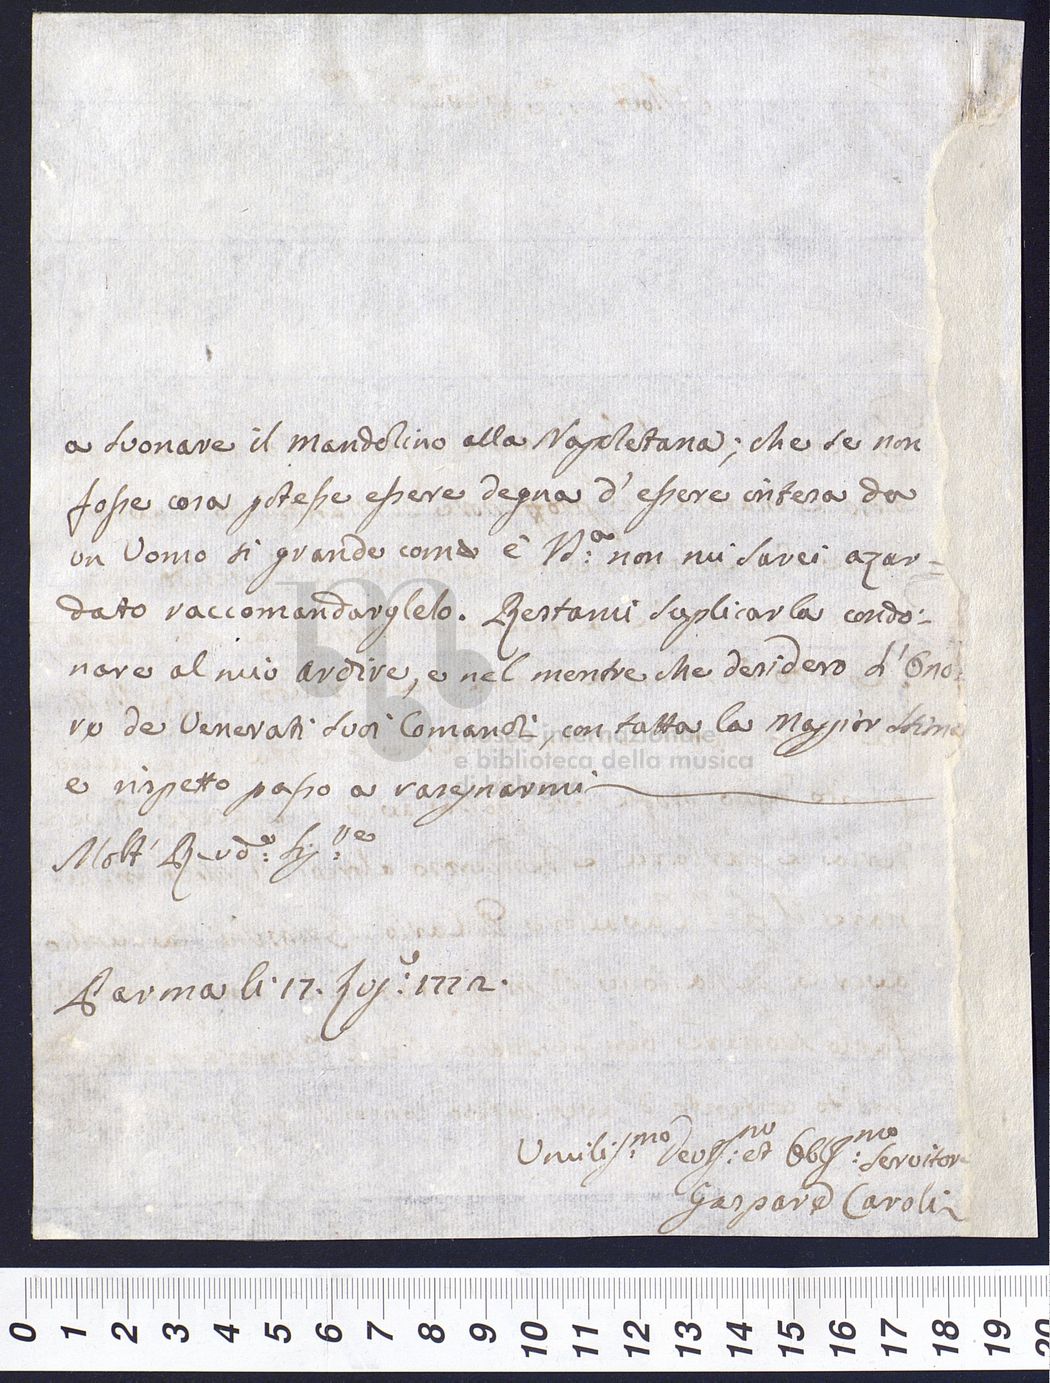 a suonare il Mandolino alla Napoletana; che se non
fosse cosa potesse essere degna d'essere intesa da
un Uomo si grande come è V.a non mi sarei azar=
dato raccomandarglelo. Restami suplicarla condo-
nare al mio ardire, e nel mentre che desidero l'Ono:
re de Venerati suoi Comandi, con tutta la Maggior stima
e rispetto passo a rasegnarmi
Molt' Revd.o Sig.re
Parma li 17. 1772.
Umiliss.mo Devss.mo et Obbss.mo Servitore
Gaspare Caroli
museo internazionale
e biblioteca della musica
di bologna
0 1 2 3 4 5 6 7 8 9 10 11 12 13 14 15 16 17 18 19 20